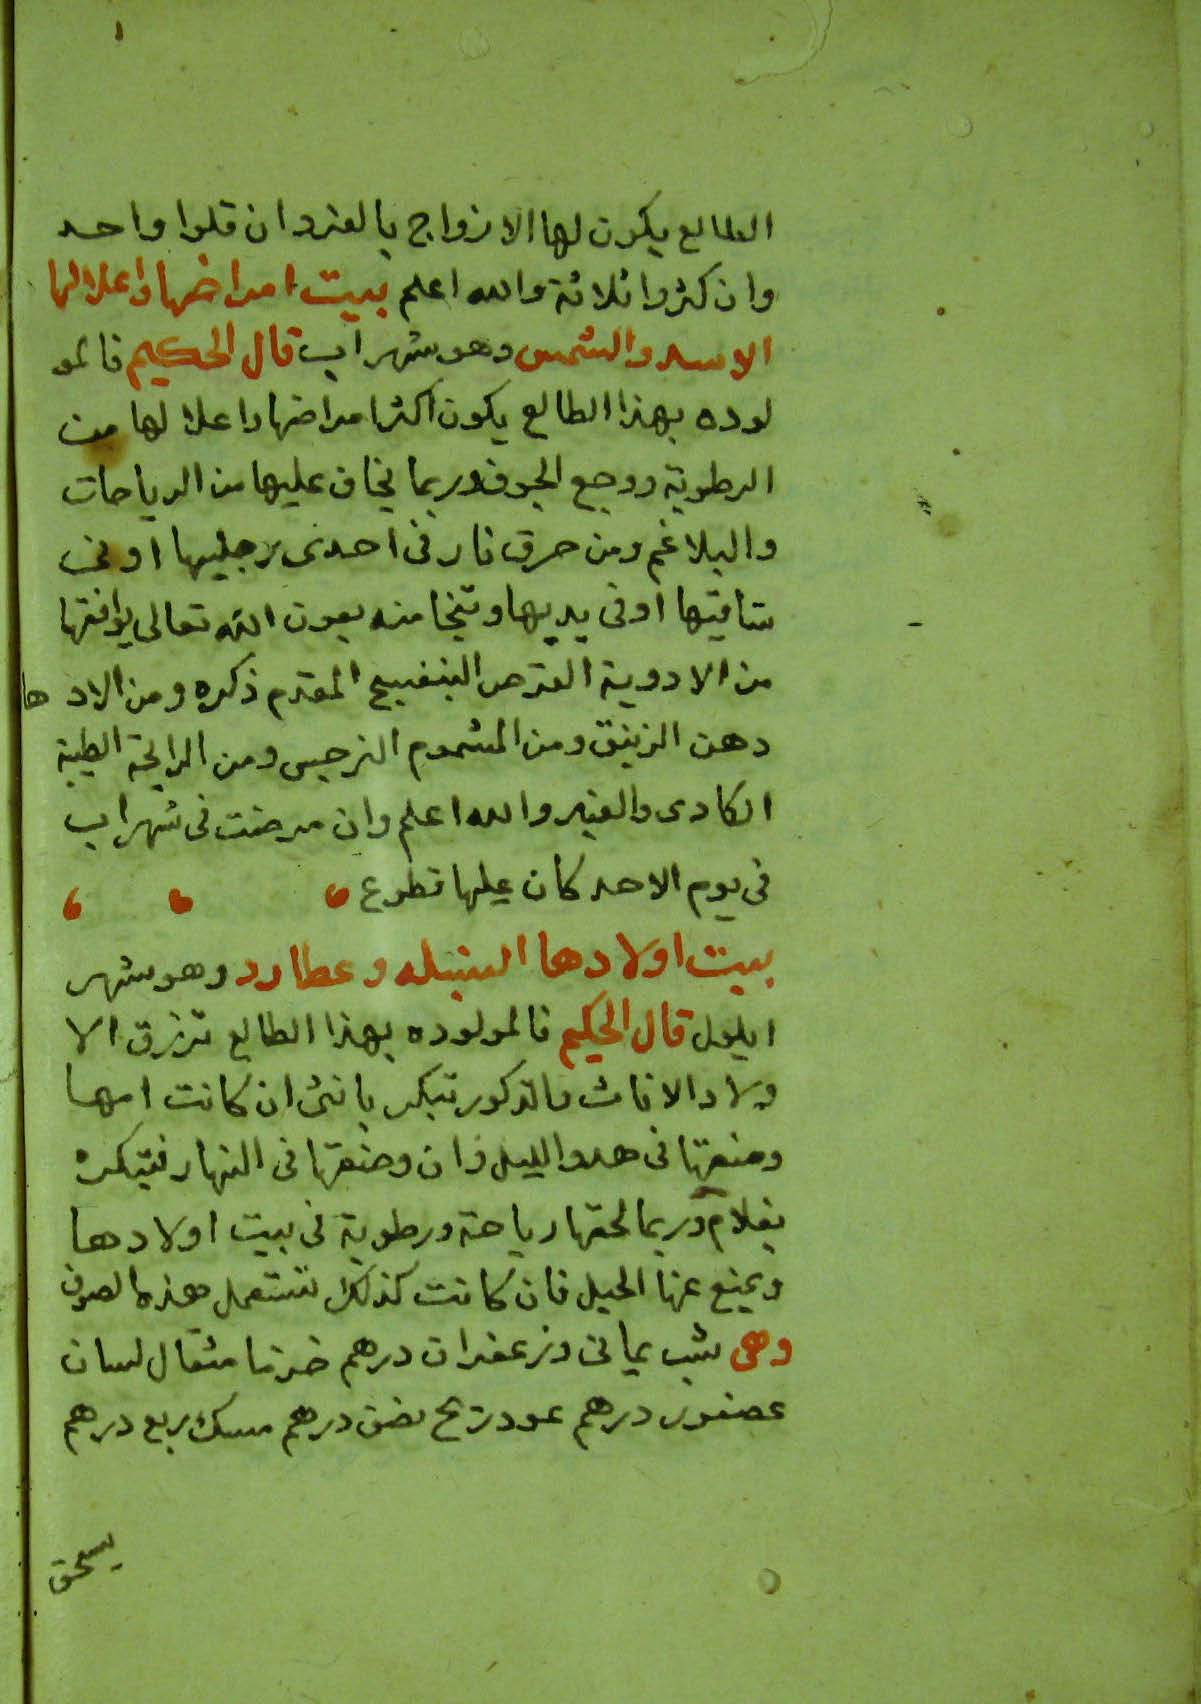 ١
الطالع يكون لها الازواج بالفرد ان قلوا واحد
وان كثروا ثلاثة والله اعلم بيت امراضها واعلالها
الاسد والشمس وهو شهر اب قال الحكيم فالمو
لوده بهذا الطالع يكون اكثر امراضها واعلالها من
الرطوبة ووجع الجوف وربما يخاف عليها من الرياحات
والبلاغم ومن حرق نار فى احدى رجليها او فى
ساقيها او فى يديها وتنجا منه بعون الله تعالى يوافقها
من الادوية القرص البنفسج المقدم ذكره ومن الاد ها
دهن الزنبق ومن المشموم النرجس ومن الرايحة الطيبة
الكادى والعنبر والله اعلم وان مرضت فى شهر اب
فى يوم الاحد كان عليها قطوع
بيت اولادها السنبله وعطارد وهو شهر
ايلول قال الحكيم فالمولوده بهذا الطالع ترزق الا
ولاد الاناث والذكور تبكر بانثى ان كانت امها
وضعتها فى هدو الليل وان وضعتها فى النهار فتبكره
بغلام وربما لحقها رياحة ورطوبة فى بيت اولادها
ويمنع عنها الحبل فان كانت كذلك تستعمل هذه الصوف
وهى شب يمانى وزعفران درهم خزنا مثقال لسان
عصفور درهم عود ريح نصف درهم مسك ربع درهم
يسحق